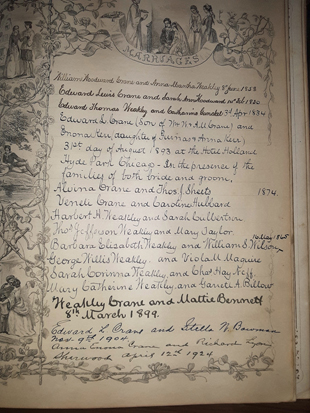 MARRIAGES
William Woodward Crane and Anna Martha Weakley 8th June 1858
Edward Lewis Crane and Sarah Ann Howard 10th Feb 1830
Edward Thomas Weakley and Catharine 3d Apr 1834
Edward L. Crane (Son of Wm W & A.M Crane) and
Enona Kerr (daughter of and Anna Kerr)
31st day of August 1893 at the Hotel Holland
Hyde Park Chicago - In the presence of the
families of both bride and groom.
Alvina Crane and Thos I Sheets 1874.
Venell Crane and Caroline Hubbard
Harbert H. Weakley and Sarah Culbertson
Thos Jefferson Weakley and Mary Taylor
Barbara Elizabeth Weakley and William S. Wilson 1865
George Willis Weakley and Viola M. Maguire
Sarah Corinna Weakley and Chas Hay Neff
Mary Catherine Weakley and Garett A. Billow
Weakley Crane and Mattie Bennett
8th March 1899.
Edward L Crane and Estelle W. Bowman
Nov. 9th 1904.
Anna Enona Crane and Richard Lyon
Sherwood April 12th 1924